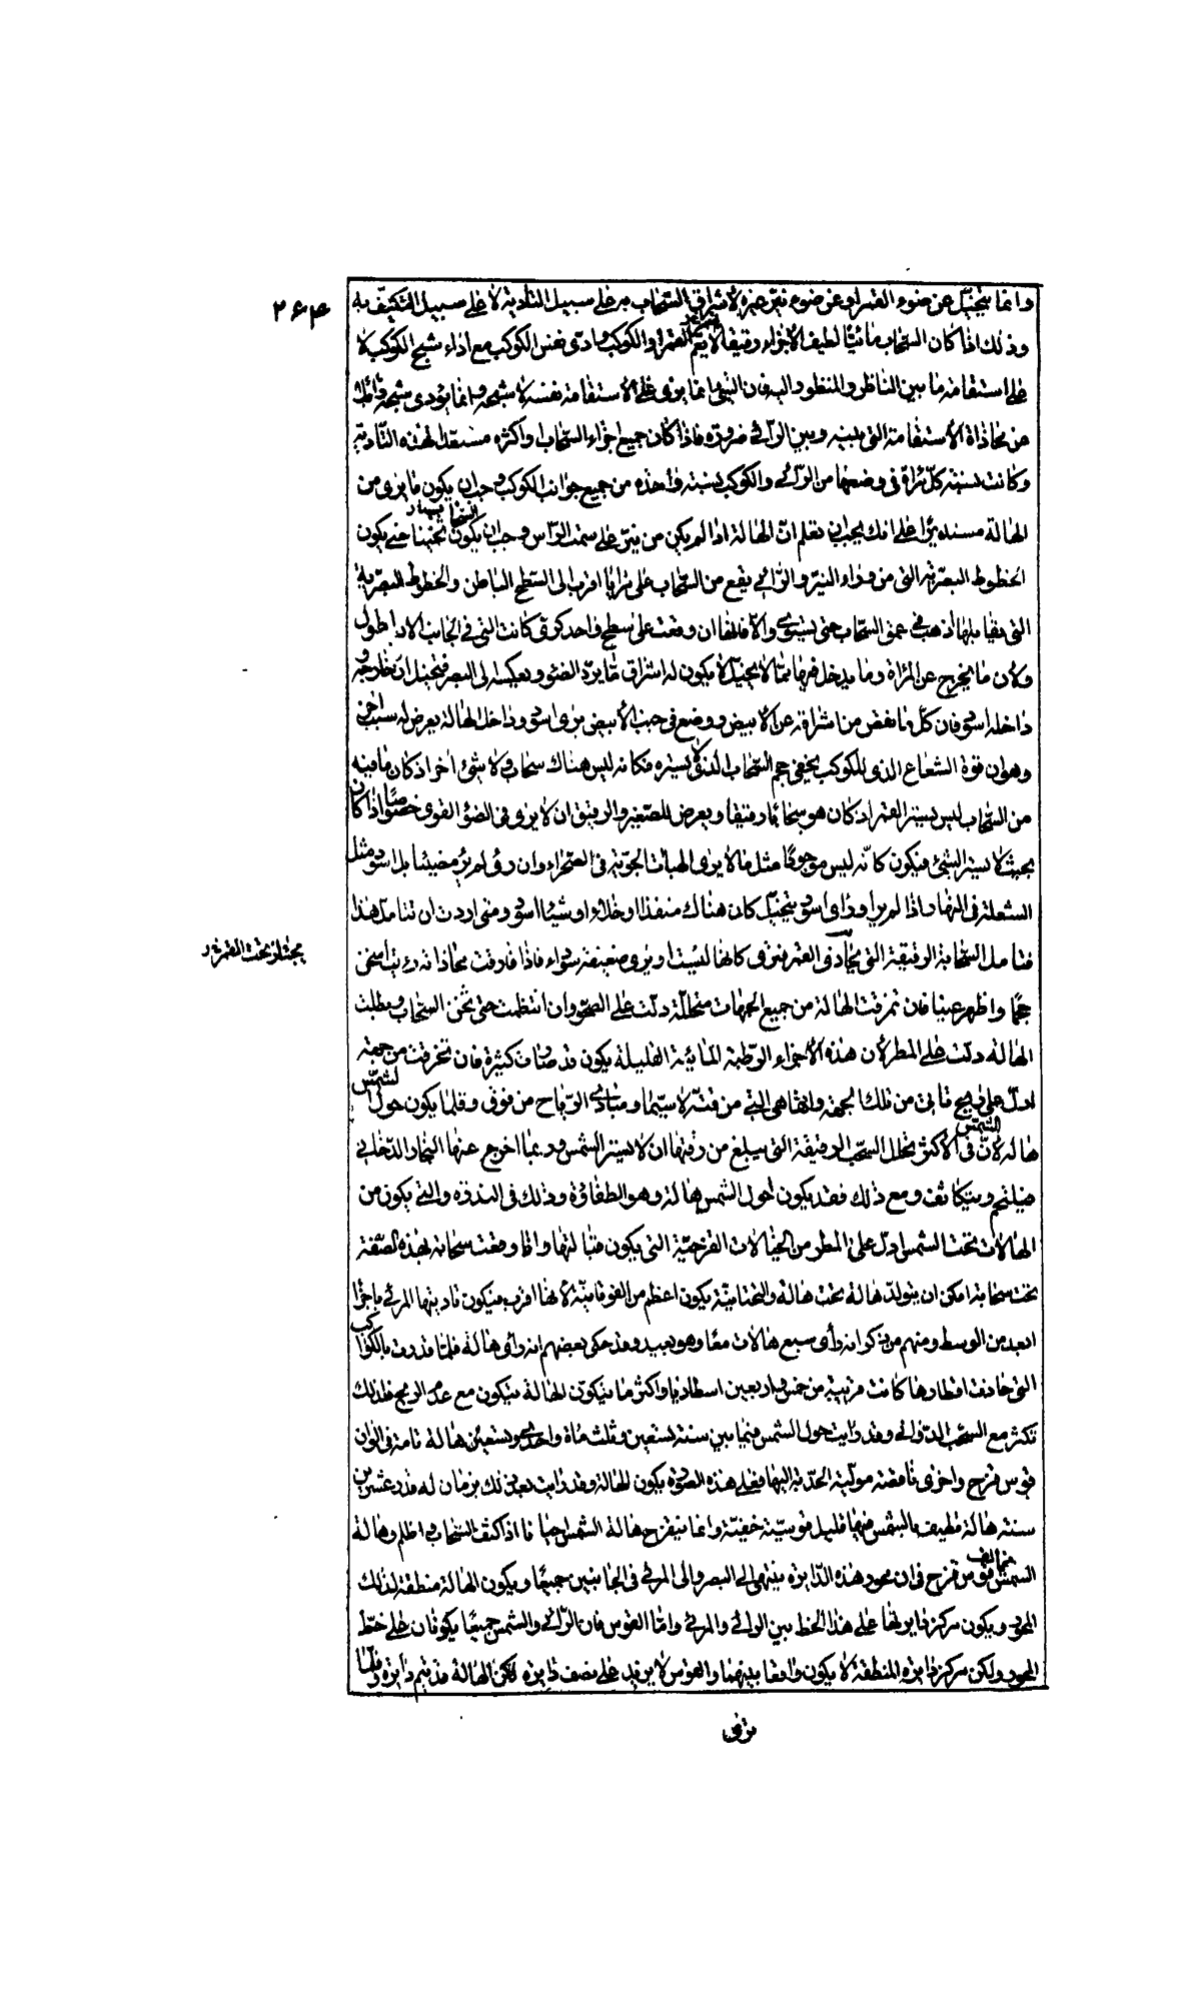 ٢۶٤
وانما يتخيل عن ضوء القمر او عن ضوء نير غيره لاشراق السحاب به على سبيل التادية لا على سبيل التكيف به
وذلك اذا كان السحاب مائيا لطيف الاجزاء رقيقا لا يستر القمر او الكوكب ادى نفس الكوكب مع اداء شبح الكوكب لا
على استقامة ما بين الناظر والمنظور اليه فان الشئ انما يرى على الاستقامة نفسه لا شبحه وانما يؤدى شبحه مرائيه
عن محاذاة الاستقامة التى بينه وبين الرائى ضرورة فاذا كان جميع اجزاء السحاب او اكثره مستعدا لهذه التادية
وكانت نسبة كل مراة فى وضعها من الرائى والكوكب نسبة واحدة من جميع جوانب الكوكب وجب ان يكون ما يرى من
الهالة مستديرا على انك يجب ان تعلم ان الهالة اذا لم يكن من نير على سمت الراس وجب ان يكون السحاب ثخينا حتى يكون
الخطوط البصرية التى من وراء النير والرائى يقع من السحاب على مرايا اقرب الى السطح الباطن والخطوط البصرية
التى يقابلها تذهب فى عمق السحاب حتى يستوى والا فانها ان وقعت على سطح واحد كرى كانت التى فى الجانب الابعد اطول
ولان ما يخرج عن المراة وما يدخل فيها مما لا يخيل لا يكون له اشراق ما يرد الضوء ويعكسه الى البصر فيتخيل ان خارجه و
داخله اسود فان كل ما نقص من اشراقه عن الابيض ووضع فى جنب الابيض يرى اسود وداخل الهالة يعرض له سبب اخر
وهو ان قوة الشعاع الذى للكوكب يخفى حجم السحاب الذى لا يستره فكانه ليس هناك سحاب ولا شئ اخر اذ كان ما فيه
من السحاب ليس يستر القمر اذ كان هو سحابا رقيقا ويعرض للصغير والرقيق ان لا يرى فى الضوء القوى خصوصا اذا كان
بحيث لا يستر الشئ فيكون كانه ليس موجودا مثل ما لا يرى الهبات الجوية فى الصحراء وان رؤى لم ير مضيئا بل اسود مثل
الشعلة فى النهار واذا لم ير او رؤى اسود يتخيل كان هناك منفذا او خلاء او شيئا اسود ومتى اردت ان تتامل هذا
فتامل السحابة الرقيقة التى يحاذى القمر فترى كانها ليست او يرى ضعيفة سوداء فاذا فارقت محاذاته رئيت اثخن
حجما واظهر عينا فان تمزقت الهالة من جميع الجهات متحللة دلت على الصحو وان انتظمت حتى ثخن السحاب وبطلت
الهالة دلت على المطر لان هذه الاجزاء الرطبة المائية القليلة يكون قد صارت كثيرة فان تخرقت من جهة
ادل على ريح تاتى من تلك الجهة وانها هى التى مزقته لا سيما ومبادى الرياح من فوق وقلما يكون حول الشمس
هالة لان الشمس فى الاكثر تحلل السحب الرقيقة التى يبلغ من رقتها ان لا يستر الشمس وربما اخرج عنها البخار الدخانى
فيلتئم ويتكاثف ومع ذلك فقد يكون حول الشمس هالة وهو الطفاوة وذلك فى الندرة والتى يكون من
الهالات تحت الشمس ادل على المطر من الخيالات القزحية التى يكون قبالتها واذا وقعت سحابة بهذه الصفة
تحت سحابة امكن ان يتولد هالة تحت هالة والتحتانية يكون اعظم من الفوقانية لانها اقرب فيكون تاديتها المرئى باجزاء
ابعد من الوسط ومنهم من يذكر انه راى سبع هالات معا وهو بعيد وقد حكى بعضهم انه راى هالة فلما قدرت بالكواكب
التى حاذت اقطارها كانت قريبة من خمس واربعين اسطاديا واكثر ما يتكون الهالة يتكون مع عدم الريح فلذلك
تكثر مع السحب الدوانى وقد رايت حول الشمس فيما بين سنة تسعين وثلث ماة واحدى وتسعين هالة تامة فى الوان
قوس قزح واخرى ناقصة مولية الحدبة اليها فعلى هذه الصورة يكون الهالة وقد رايت بعد ذلك بزمان له قدر عشرين
سنة هالة تطيف بالشمس فيها قليل قوسية خفية وانما يتقزح هالة الشمس احيانا اذا كثف السحاب واظلم وهالة
الشمس تخالف قوس قزح فى ان محور هذه الدائرة ينتهى الى البصر والى المرئى فى الجانبين جميعا ويكون الهالة منطقة لذلك
المحور ويكون مركز دائرتها على هذا الخط بين الرائى والمرئى واما القوس فان الرائى والشمس جميعا يكونان على خط
المحور ولكن مركز دائرة المنطقة لا يكون واقعا بينهما والقوس لا يزيد على نصف دائرة لكن الهالة قد تتم دائرة وقلما
ترى